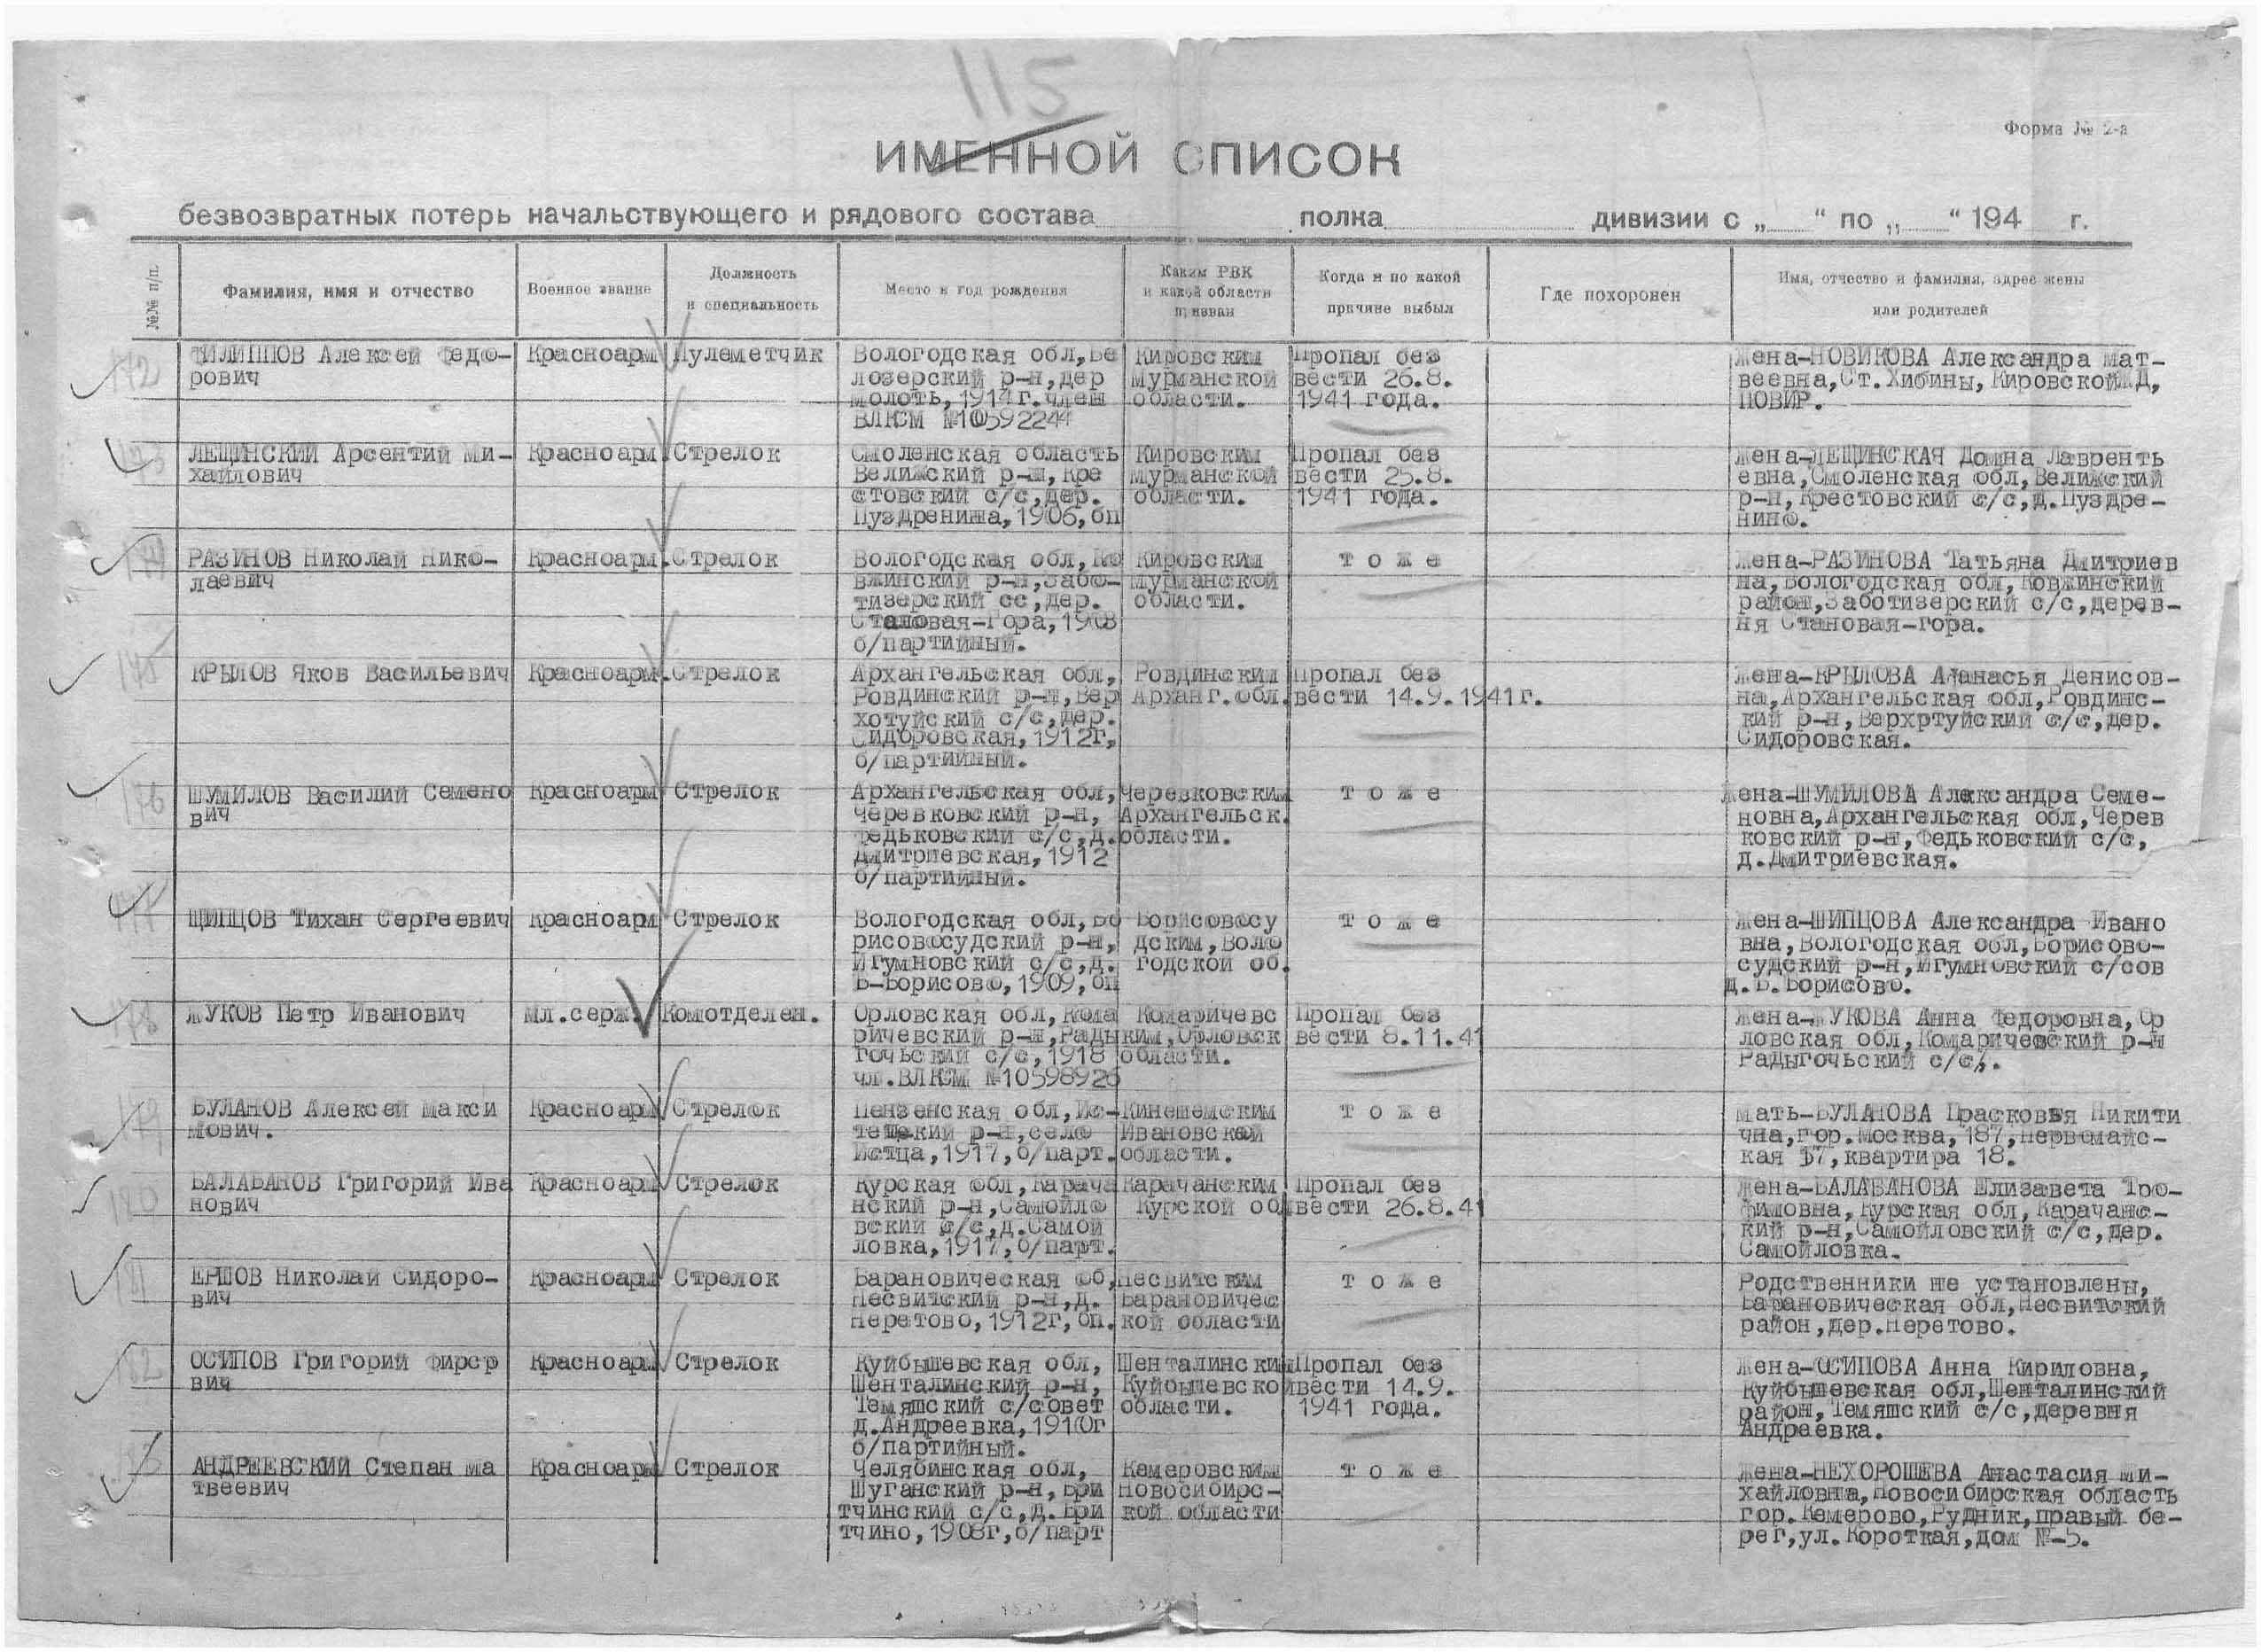 115
Форма № 2-а
ИМЕННОЙ СПИСОК
безвозвратных потерь начальствующего и рядового состава полка дивизии с „ “ по „ “ 194 г.
№№ п/п.
Фамилия, имя и отчество
Военное звание
Должность
и специальность
Место и год рождения
Каким РВК
и какой области
призван
Когда и по какой
причине выбыл
Где похоронен
Имя, отчество и фамилия, адрес жены
или родителей
172
ФИЛИППОВ Алексей Федо-
рович
Красноарм
Пулеметчик
Вологодская обл,Бе
лозерский р-н,дер
молоть,1914г.член
ВЛКСМ №10592244
Кировским
Мурманской
области.
Пропал без
вести 26.8.
1941 года.
Жена-НОВИКОВА Александра Мат-
веевна,Ст.Хибины,КировскойЖД,
ПОВИР.
173
ЛЕЩИНСКИЙ Арсентий Ми-
хайлович
Красноарм
Стрелок
Смоленская область
Велижский р-н,Кре
стовский с/с,дер.
Пуздренина,1906,бп
Кировским
Мурманской
области.
Пропал без
вести 25.8.
1941 года.
Жена-ЛЕЩИНСКАЯ Домна Лавренть
евна,Смоленская обл,Велижский
р-н,Крестовский с/с,д.Пуздре-
нино.
174
РАЗИНОВ Николай Нико-
лаевич
Красноарм.
Стрелок
Вологодская обл,Ко
вжинский р-н,Забо-
тизерский сс,дер.
Становая-Гора,1908
б/партийный.
Кировским
Мурманской
области.
т о ж е
Жена-РАЗИНОВА Татьяна Дмитриев
на,Вологодская обл,Ковжинский
район,Заботизерский с/с,дерев-
ня Становая-гора.
175
КРЫЛОВ Яков Васильевич
Красноарм.
Стрелок
Архангельская обл,
Ровдинский р-н,Вер
хотуйский с/с,дер.
Сидоровская,1912г,
б/партийный.
Ровдинским
Арханг.обл.
Пропал без
вести 14.9.1941г.
Жена-КРЫЛОВА Афанасья Денисов-
на,Архангельская обл,Ровдинс-
кий р-н,Верхртуйский с/с,дер.
Сидоровская.
176
ШУМИЛОВ Василий Семено
вич
Красноарм
Стрелок
Архангельская обл,
Черевковский р-н,
Федьковский с/с,д.
Дмитриевская,1912
б/партийный.
Черевковским
Архангельск.
области.
т о ж е
Жена-ШУМИЛОВА Александра Семе-
новна,Архангельская обл,Черев
ковский р-н,Федьковский с/с,
д.Дмитриевская.
177
ШИПЦОВ Тихан Сергеевич
Красноарм
Стрелок
Вологодская обл,Бо
рисовосудский р-н,
Игумновский с/с,д.
Б-Борисово,1909,бп
Борисовосу
дским,Воло
годской об.
т о ж е
Жена-ШИПЦОВА Александра Ивано
вна,Вологодская обл,Борисово-
судский р-н,Игумновский с/сов
д.Б.Борисово.
178
ЖУКОВ Петр Иванович
Мл.серж.
Комотделен.
Орловская обл,Кома
ричевский р-н,Рады
гочьский с/с,1918
чл.ВЛКСМ №10598926
Комаричевс
ким,Орловск
области.
Пропал без
вести 8.11.41
Жена-ЖУКОВА Анна Федоровна,Ор
ловская обл,Комаричевский р-н
Радыгочьский с/с,.
179
БУЛАНОВ Алексей Макси
мович.
Красноарм
Стрелок
Пензенская обл,Ис-
тецкий р-н,село
Истца,1917,б/парт.
Кинешемским
Ивановской
области.
т о ж е
Мать-БУЛАНОВА Прасковья Никити
чна,гор.Москва,187,Первомайс-
кая 17,квартира 18.
180
БАЛАБАНОВ Григорий Ива
нович
Красноарм
Стрелок
Курская обл,Карача
нский р-н,Самойло
вский с/с,д.Самой
ловка,1917,б/парт.
Карачанским
Курской обл
Пропал без
вести 26.8.41
Жена-БАЛАБАНОВА Елизавета Тро-
фимовна,Курская обл,Карачанс-
кий р-н,Самойловский с/с,дер.
Самойловка.
181
ЕРШОВ Николай Сидоро-
вич
Красноарм
Стрелок
Барановическая об,
Несвитский р-н,д.
Неретово,1912г,бп.
Несвитским
Барановичес
кой области
т о ж е
Родственники не установлены,
Барановическая обл,Несвитский
район,дер.Неретово.
182
ОСИПОВ Григорий Фирср
вич
Красноарм
Стрелок
Куйбышевская обл,
Шенталинский р-н,
Темяшский с/совет
д.Андреевка,1910г
б/партийный.
Шенталинским
Куйбышевской
области.
Пропал без
вести 14.9.
1941 года.
Жена-ОСИПОВА Анна Кириловна,
Куйбышевская обл,Шенталинский
район,Темяшский с/с,деревня
Андреевка.
183
АНДРЕЕВСКИЙ Степан Ма
твеевич
Красноарм
Стрелок
Челябинская обл,
Шуганский р-н,Бри
тчинский с/с,д.Бри
тчино,1908г,б/парт
Кемеровским
Новосибирс-
кой области
т о ж е
Жена-НЕХОРОШЕВА Анастасия Ми-
хайловна,Новосибирская область
гор.Кемерово,Рудник,правый бе-
рег,ул.Короткая,дом №-5.